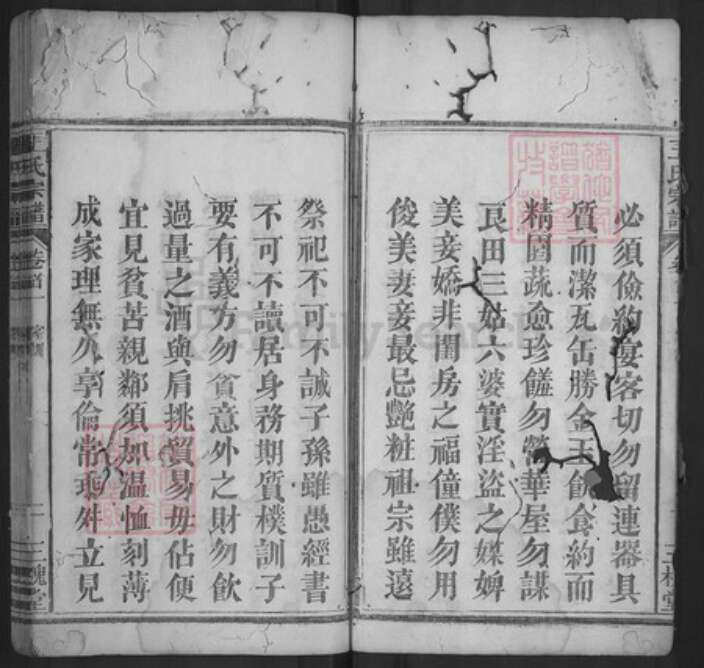 必須儉約宴客切勿留連器具
質而潔瓦缶勝金玉飲食約而
精園蔬愈珍饈勿營華屋勿謀
良田三姑六婆實淫盜之媒婢
美妾嬌非閨房之福僮僕勿用
俊美妻妾最忌艷粧祖宗雖遠
祭祀不可不誠子孫雖愚經書
不可不讀居身務期質樸訓子
要有義方勿貪意外之財勿飲
過量之酒與肩挑貿易毋佔便
宜見貧苦親鄰須加温恤刻薄
成家理無久享倫常乖舛立見
王氏宗譜
卷首
家訓
三槐堂
王氏宗譜
三槐堂
FamilySearch